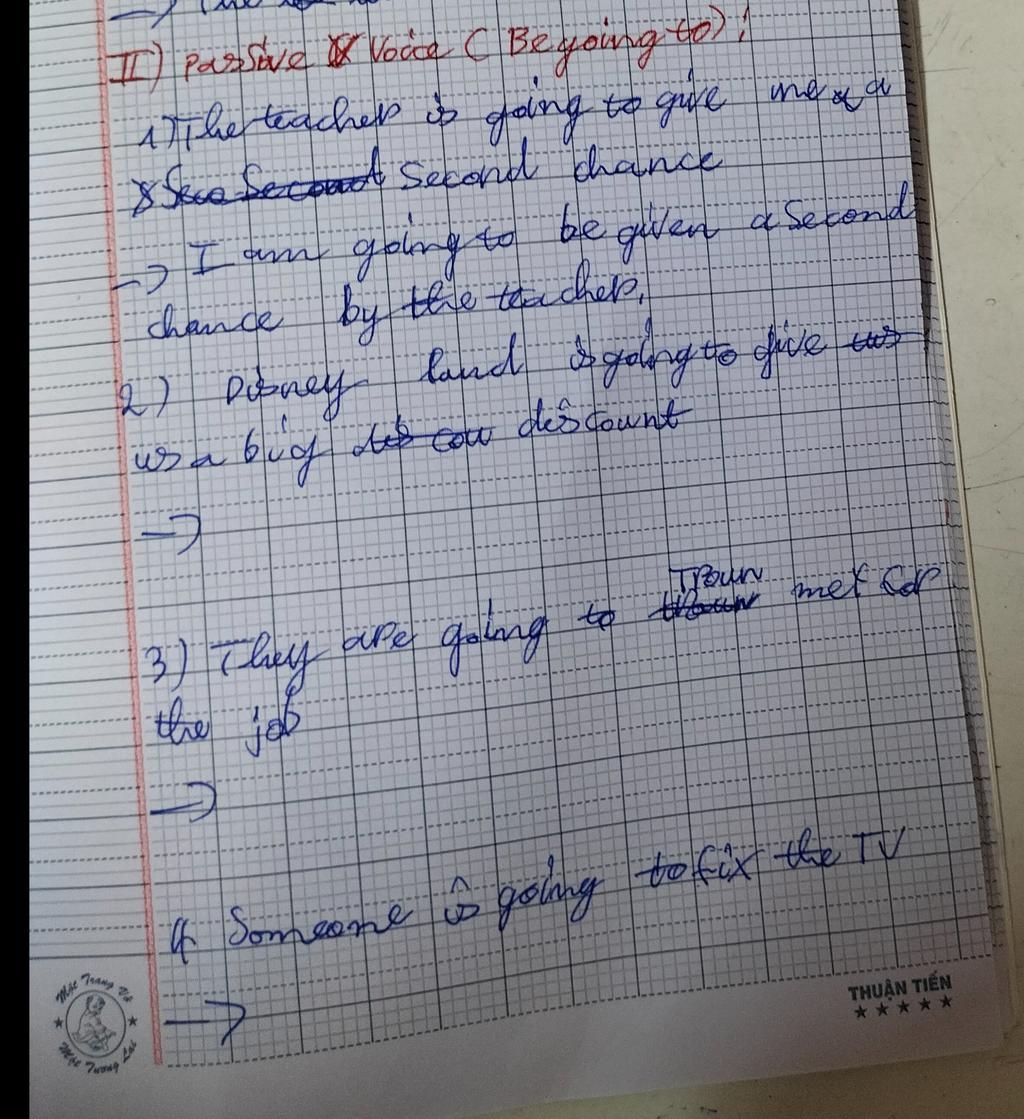 II) Passive Voice (Be going to):
1) The teacher is going to give me a
second chance
-> I am going to be given a second
chance by the teacher.
2) Disney land is going to give
us a big discount
->
3) They are going to Train me for
the job
->
4 Someone is going to fix the TV
->
Mặc Trang Vở
Mặc Tương Lai
THUẬN TIẾN
★ ★ ★ ★ ★